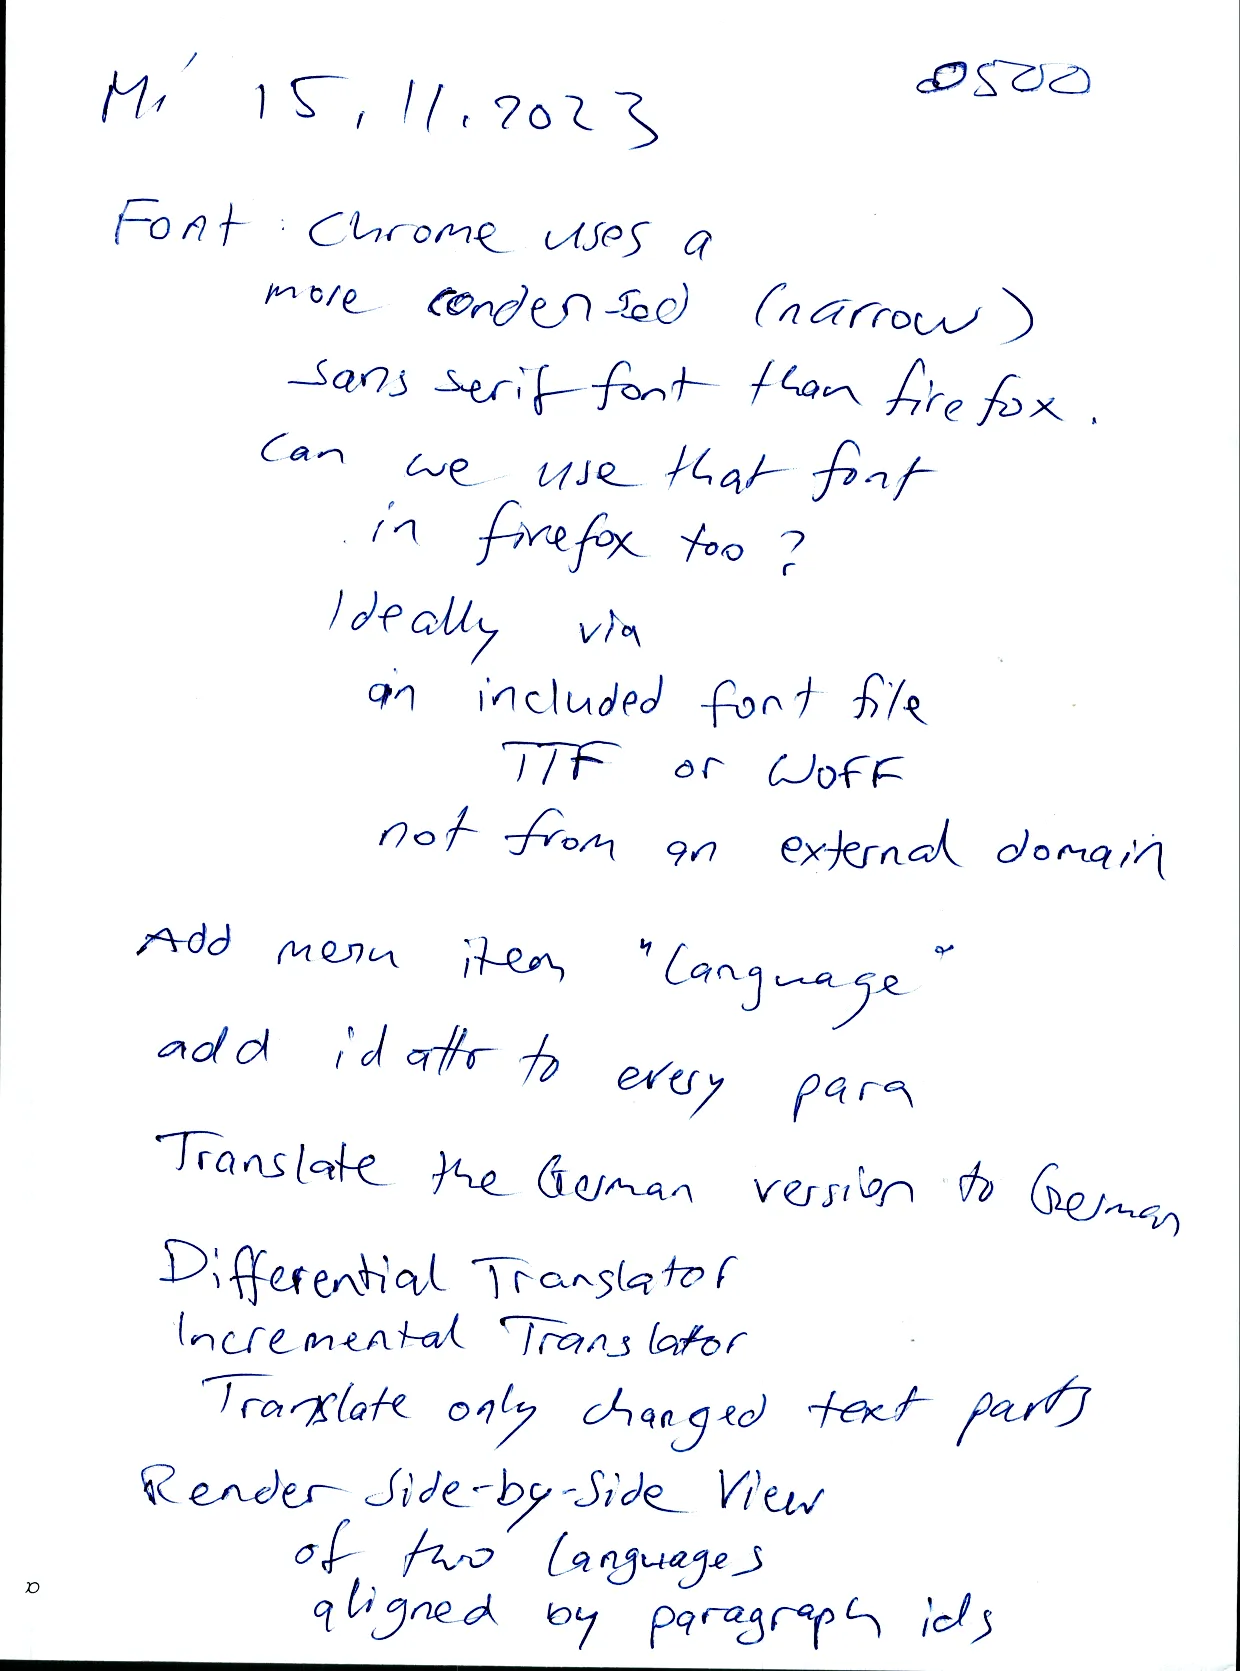 Mi 15.11.2023
0500
Font: Chrome uses a
more condensed (narrow)
sans serif font than firefox.
Can we use that font
in firefox too?
Ideally via
an included font file
TTF or WOFF
not from an external domain
Add menu item "Language"
add id attr to every para
Translate the German version to German
Differential Translator
Incremental Translator
Translate only changed text parts
Render Side-by-Side View
of two languages
aligned by paragraph ids